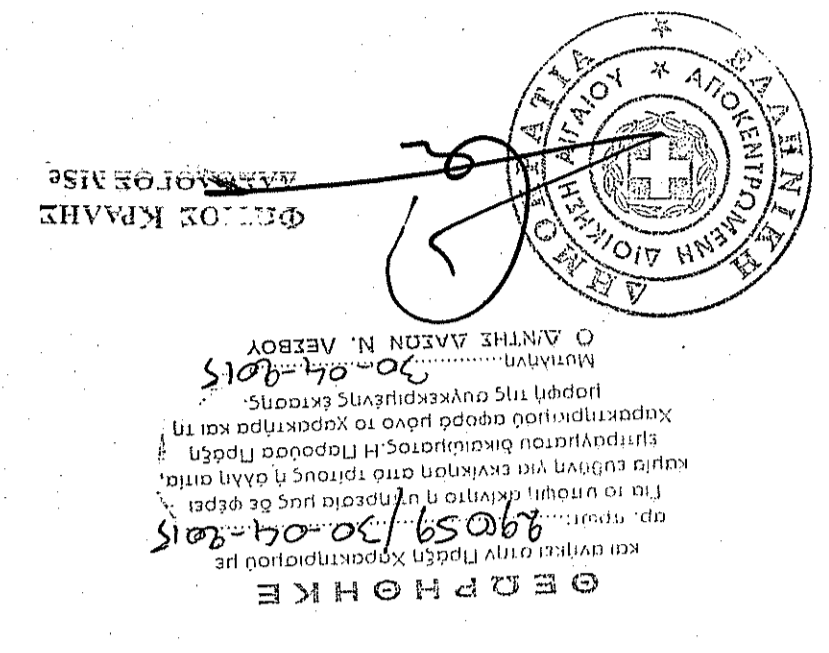 ΘΕΩΡΗΘΗΚΕ
και ανήκει στην Πράξη Χαρακτηρισμού με
αρ. πρωτ: 29059/30-04-2015
Για το υπόψη ακίνητο η υπηρεσία μας δε φέρει
καμία ευθύνη για εκνίκηση από τρίτους ή άλλη αιτία,
εμπράγματου δικαιώματος.Η Παρούσα Πράξη
Χαρακτηρισμού αφορά μόνο το χαρακτήρα και τη
μορφή της συγκεκριμένης έκτασης.
Μυτιλήνη 30-04-2015
Ο Δ/ΝΤΗΣ ΔΑΣΩΝ Ν. ΛΕΣΒΟΥ
ΕΛΛΗΝΙΚΗ ΔΗΜΟΚΡΑΤΙΑ
ΑΠΟΚΕΝΤΡΩΜΕΝΗ ΔΙΟΙΚΗΣΗ ΑΙΓΑΙΟΥ
ΦΩΤΙΟΣ ΚΡΑΛΗΣ
ΔΑΣΟΛΟΓΟΣ MSc